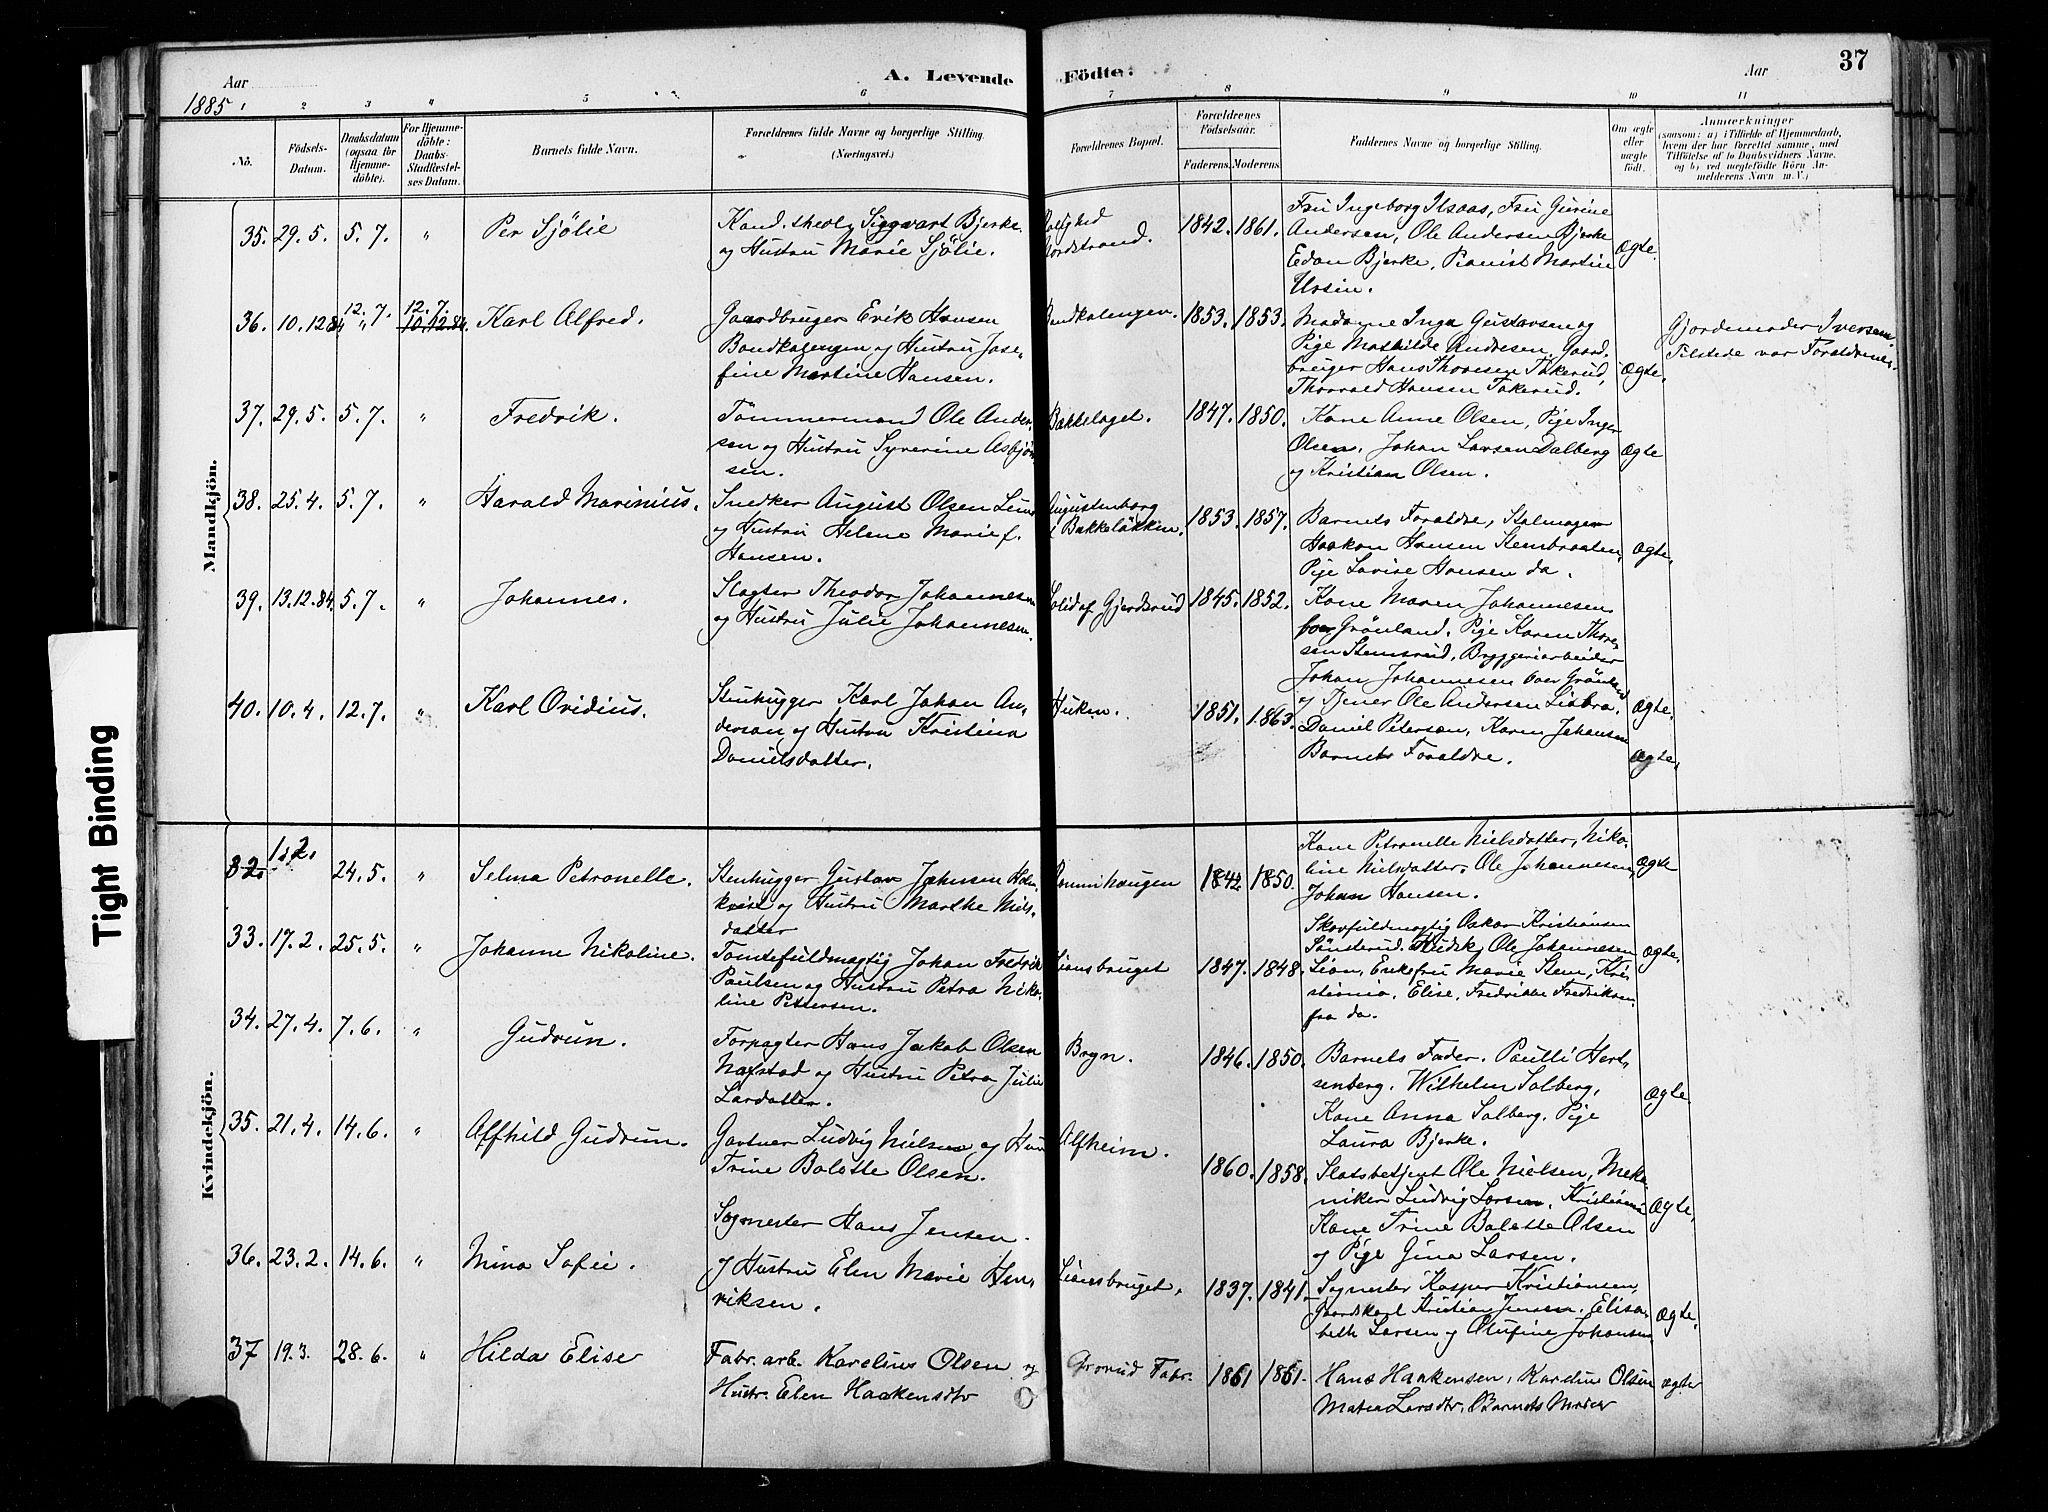 Aar
1885
A. Levende Födte.
Aar
37
1 2 3 „ 5 6 7 8 9 10 11
No.
Födsels-
Datum.
Daabsdatum
(ogsaa for
Hjemme-
döbte).
For Hjemme-
döbte:
Daabs-
Stadfæstel-
ses Datum.
Barnets fulde Navn.
Forældrenes fulde Navne og borgerlige Stilling.
(Næringsvei.)
Forældrenes Bopæl.
Forældrenes
Födselsaar.
Faderens. Moderens.
Faddernes Navne og borgerlige Stilling.
Om ægte
eller
uægte
födt.
Anmærkninger
(saasom: a) i Tilfælde af Hjemmedaab,
hvem der har forrettet samme, med
Tilföielse af to Daabsvidners Navne,
og b) ved uægtefödte Börn An-
melderens Navn m. V.)
Mandkjön.
35. 29. 5. 5. 7. „ Per Sjölie
Kand. theol. Siggvart Bjerke
og Hustru Marie Sjölie.
Nordstrand.
1842. 1861.
Fru Ingeborg Ilsaas, Fru Gurine
Andersen, Ole Andersen Bjerke
Edon Bjerke, Pianist Martin
Ursin.
Ægte.
36. 10. 12 84 12. 7. 12. 7. 10.12.84. Karl Alfred.
Gaardbruger Erik Hansen
Bondkalengen og Hustru Jose-
fine Martine Hansen.
Bondkalengen.
1853. 1853.
Madame Inga Gustavsen og
Pige Mathilde Andresen. Gaard-
bruger Hans Thoresen Takerud,
Thorvald Hansen Takerud.
Ægte.
Gjordemoder Iversen.
Tilstede var Forældrene.
37. 29. 5. 5. 7. „ Fredrik.
Tömmermand Ole Ander-
sen og Hustru Syverine Asbjörn-
sen.
Bækkelaget.
1847. 1850.
Kone Anne Olsen, Pige Inger
Olsen, Johan Larsen Dalberg
og Kristian Olsen.
Ægte
38. 25. 4. 5. 7. „ Harald Marinius.
Snedker August Olsen Lund
og Hustru Helene Marie f.
Hansen.
Augustenborg
i Bakkelökken.
1853. 1857.
Barnets Forældre, Stalmager
Haakon Hansen Stenbraaten,
Pige Lovise Hansen da.
Ægte.
39. 13.12.84. 5. 7. „ Johannes.
Slagter Theodor Johannesen
og Hustru Julie Johannesen.
Solid af Gjerdsrud
1845. 1852.
Kone Maren Johannesen
boer Grönland. Pige Karen Thore-
sen Stensrud, Bryggeriarbeider
Johan Johannesen boer Grönland
og Tjener Ole Andersen Liabra.
Ægte.
40. 10. 4. 12. 7. „ Karl Ovidius.
Stenhugger Karl Johan An-
derson og Hustru Kristina
Danielsdatter.
Huken.
1851. 1863.
Daniel Petersen, Karen Johansen
Barnets Forældre.
Ægte.
Kvindekjön.
32. 1. 2. 24. 5. „ Selma Petronelle.
Stenhugger Gustav Johnsen Holm-
kvist og Hustru Marthe Nils-
datter
Rommihaugen
1842. 1850.
Kone Petronelle Nielsdatter, Niko-
line Nielsdatter. Ole Johannesen,
Johan Hansen.
Ægte
33. 17. 2. 25. 5. „ Johanne Nikoline.
Tomtefuldmægtig Johan Fredrik
Paulsen og Hustru Petra Niko-
line Pettersen.
Liansbruget
1847. 1848.
Skovfuldmægtig Oskar Kristiansen
Sönsterud. Husk. Ole Johannesen
Lian, Enkefru Marie Stem, Kri-
stiania, Elise, Fredrikke Fredriksen
fra da.
Ægte.
34. 27. 4. 7. 6. „ Gudrun.
Forpagter Hans Jakob Olsen
Nafstad og Hustru Petra Julie
Larsdatter.
Bryn.
1846. 1850.
Barnets Fader. Paulli Hert-
senberg. Wilhelm Solberg,
Kone Anna Solberg. Pige
Laura Bjerke.
Ægte
35. 21. 4. 14. 6. „ Alfhild Gudrun.
Gartner Ludvig Nielsen og Hus
Trine Bolette Olsen.
Alfheim.
1860. 1858.
Slotsbetjent Ole Nielsen, Meka-
niker Ludvig Larsen, Kristiania
Kone Trine Bolette Olsen
og Pige Gina Larsen.
Ægte.
36. 23. 2. 14. 6. „ Mina Sofie.
Sagmester Hans Jensen.
og Hustru Elen Marie Hen-
riksen.
Liansbruget.
1837. 1841.
Sagmester Kasper Kristiansen,
Gaardskarl Kristian Jensen. Elisa-
beth Larsen og Olufine Johansen
Ægte.
37 19. 3. 28. 6. „ Hilda Elise
Fabr. arb. Karelius Olsen og
Hustr. Elen Haakensdtr
Grorud Fabr.
1861 1861.
Hans Haakensen, Karelius Olsen
Matea Larsdtr, Barnets Moder
ægte
Tight Binding